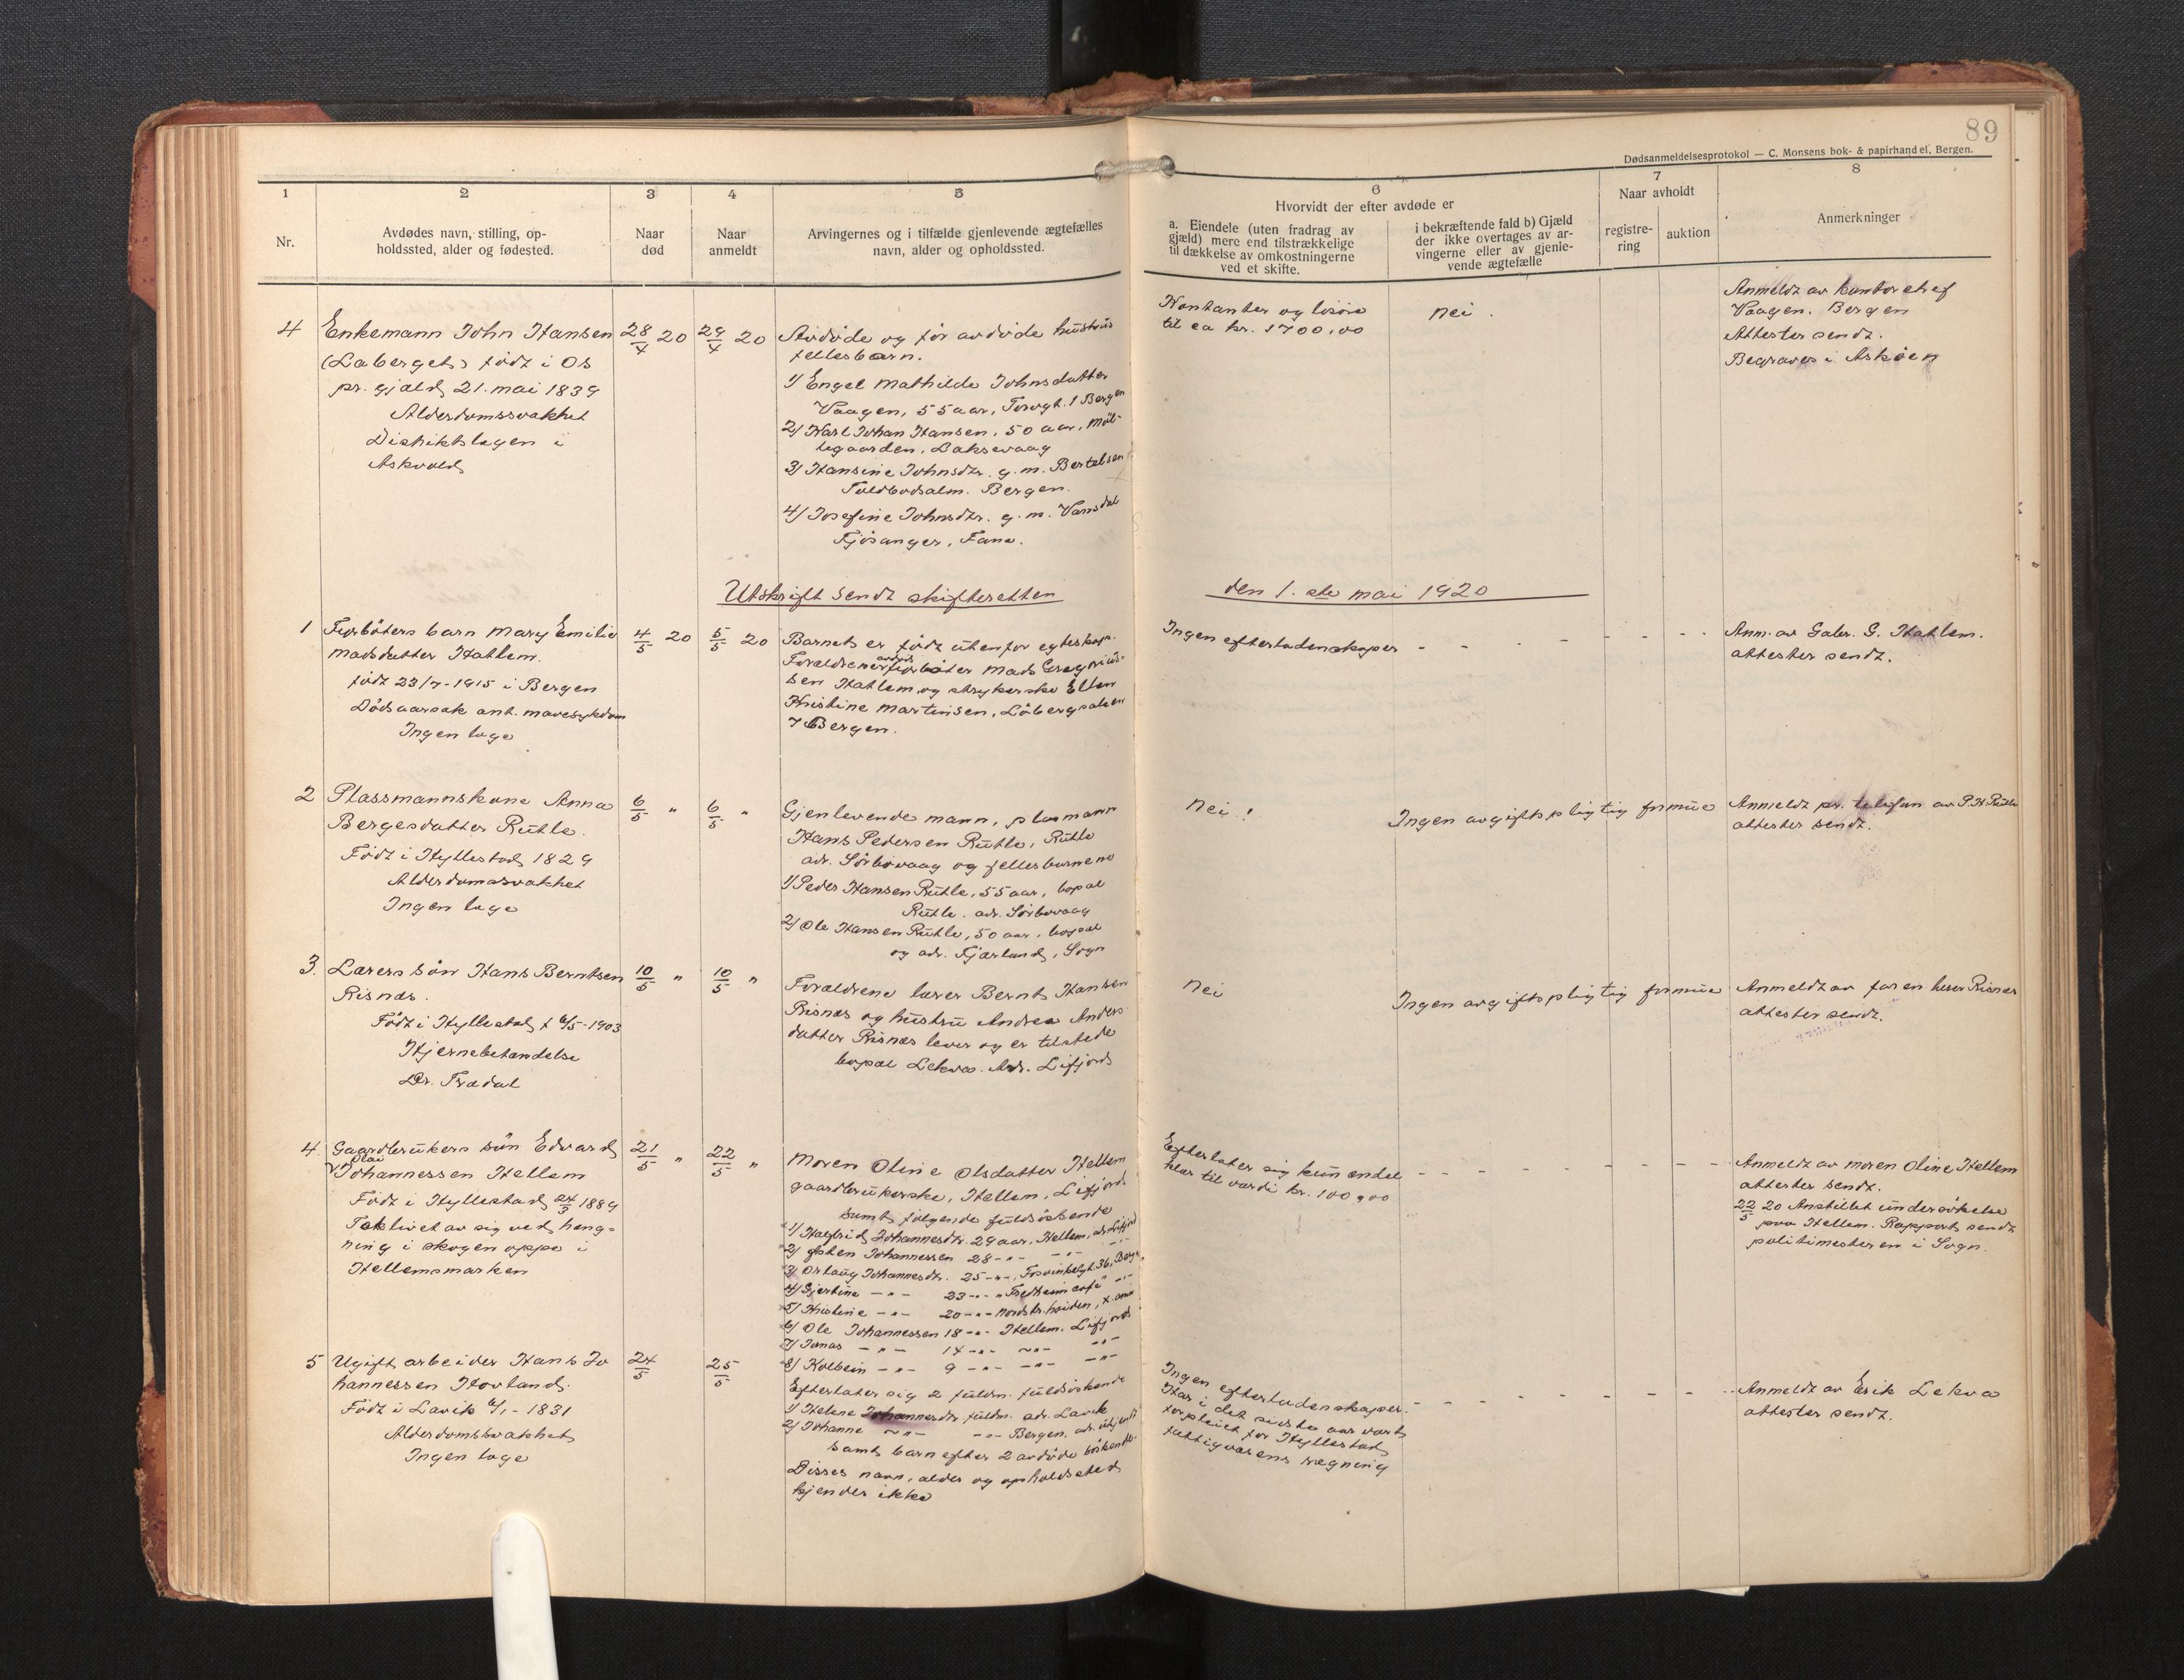 89
Dødsanmeldelsesprotokol — C. Monsens bok- & papirhandel, Bergen.
1
2
3
4
5
6
7
8
Nr.
Avdødes navn, stilling, op-
holdssted, alder og fødested.
Naar
død
Naar
anmeldt
Arvingernes og i tilfælde gjenlevende ægtefælles
navn, alder og opholdssted.
Hvorvidt der efter avdøde er
a. Eiendele (uten fradrag av
gjæld) mere end tilstrækkelige
til dækkelse av omkostningerne
ved et skifte.
i bekræftende fald b) Gjæld
der ikke overtages av ar-
vingerne eller av gjenle-
vende ægtefælle
Naar avholdt
registre-
ring
auktion
Anmerkninger
4
Enkemann John Hansen
(Laberget) född i Os
pr. gjæld, 21. mai 1839
Alderdomssvakhet
Distriktslægen i
Askvold
28/4 20
29/4 20
Avdöde og för avdöde hustrus
fellesbarn.
1/ Engel Mathilde Johnsdatter
Vaagen, 55 aar, Torvgt. 1 Bergen
2/ Karl Johan Hansen, 50 aar, Möl-
legaarden, Laksevaag
3/ Hansine Johnsdtr. g. m. Bertelsen
Toldbodalm. Bergen.
4/ Josefine Johnsdtr. g. m. Vansdal
Fjösanger, Fane.
Kontanter og lösöre
til ca kr. 1700,00
nei.
Anmeldt av kontorchef
Vaagen. Bergen
Attester sendt.
Begraves i Asköen
Utskrift sendt skifteretten den 1.ste mai 1920
1
Fyrböters barn Mary Emilie
Madsdatter Hatlem.
född 23/7-1915 i Bergen
Dödsaarsak ant. mavesykdom
Ingen læge
4/5 20
5/5 20
Barnet er född utenfor egteskap.
Foreldrene er avdöde fyrböter Mads Gregorius-
sen Hatlem og strykerske Ellen
Kristine Martinsen, Löbergsalmen
7 Bergen.
Ingen efterladenskaper - - - - - - -
Anm. av Gabr. G. Hatlem.
attester sendt.
2
Plassmannskone Anna
Bergesdatter Rutle.
Född i Hyllestad 1829
Alderdomssvakhet
Ingen læge
6/5 "
6/5 "
Gjenlevende mann, plasmann
Hans Pedersen Rutle, Rutle
adr. Sörbövaag og fellesbarnene
1/ Peder Hansen Rutle, 55 aar, bopæl
Rutle. adr. Sörbövaag
2/ Ole Hansen Rutle, 50 aar, bopæl
og adr. Fjærland, Sogn
nei!
Ingen avgiftspligtig formue
Anmeldt pr. telefon av P. H. Rutle
attester sendt.
3.
Lærers sön Hans Berntsen
Risnæs.
Född i Hyllestad 6/5-1903
Hjernebetændelse
Dr. Trædal
10/5 "
10/5 "
Foreldrene lærer Bernt Hansen
Risnæs og hustru Andrea Anders-
datter Risnæs lever og er tilstede
bopæl Lekva. Adr. Lifjord
nei
Ingen avgiftspligtig formue
Anmeldt av faren lærer Risnæs
attester sendt.
4.
Gaardbrukers sön Edvard
Johannessen Hellem
Född i Hyllestad 24/3 1889
Tok livet av sig ved heng-
ning i skogen oppe i
Hellemsmarken
21/5 "
22/5 "
Moren Oline Olsdatter Hellem
gaardbrukerske, Hellem, Lifjord
samt følgende fuldsöskende
1/ Halfrid Johannesdtr. 29 aar, Hellem, adr. Lifjord
2/ Johannessen 28 -"- -"- -"-
3/ Johannesdtr. 25 -"- 36, Bergen
4/ Gjertine -"- 23 -"- Fredheim café -"-
5/ Kristine -"- 20 -"-
6/ Ole Johannessen 18 -"- Hellem. Lifjord
7/ Jonas -"- 14 -"- -"- -"-
8/ Kolbein -"- 9 -"- -"- -"-
Efterlater sig kun endel
klær til værdi kr. 100,00 - - - - - - -
Anmeldt av moren Oline Hellem
attester sendt.
22/5 20 Anstillet undersökelse
paa Hellem. Rapport sendt
politimesteren i Sogn.
5
Ugift arbeider Hans Jo
hannessen Hovland.
Född i Lavik 6/1-1831
Alderdomssvakhet
Ingen læge
24/5
25/5
Efterlater sig 2 fuldm. fuldsöskende
1/ Helene Johannesdtr. fuldm. adr. Lavik
2/ Johanne -"- -"- Bergen, adr.
samt barn efter 2 avdöde söskende.
Disses navn, alder og opholdssted
kjendes ikke
Ingen efterladenskaper.
Har i det sidste aar vært
forpleiet for Hyllestad
fattigvæsens regning
- - - - - - -
Anmeldt av Erik Lekva
attester sendt.